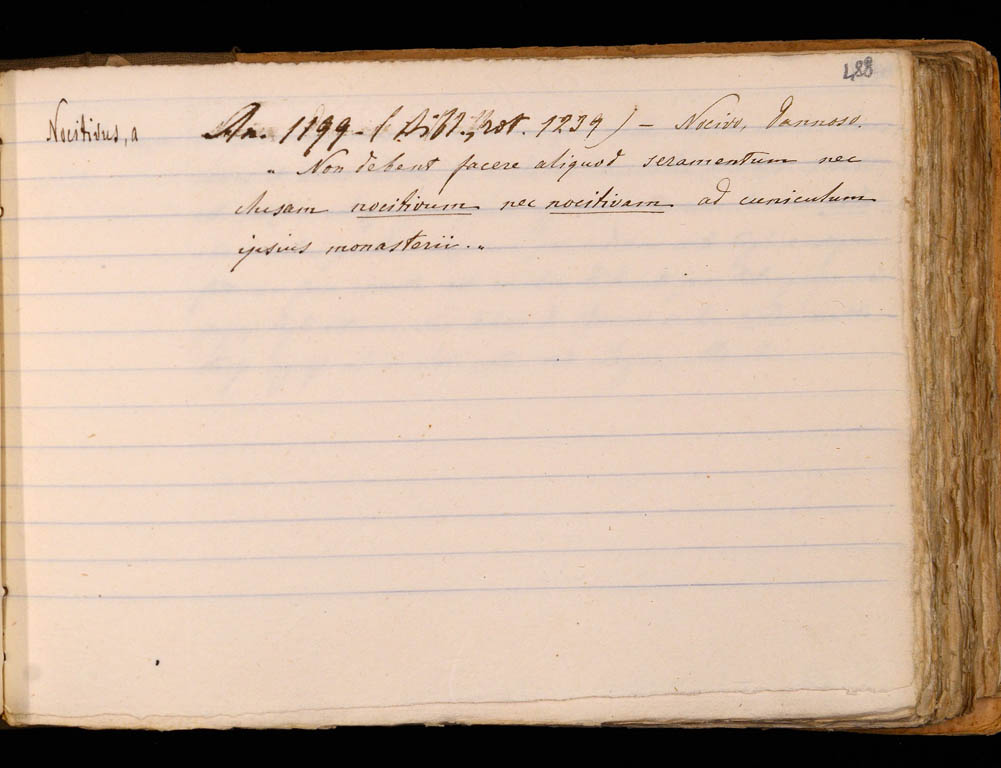 488
Nocitivus, a An. 1199 - ( Bibl., rot. 1239 ) - Nocivo, dannoso.
" Non debent facere aliquod seramentum nec
clusam nocitivum nec nocitivam ad cuniculum
ipsius monasterii. "